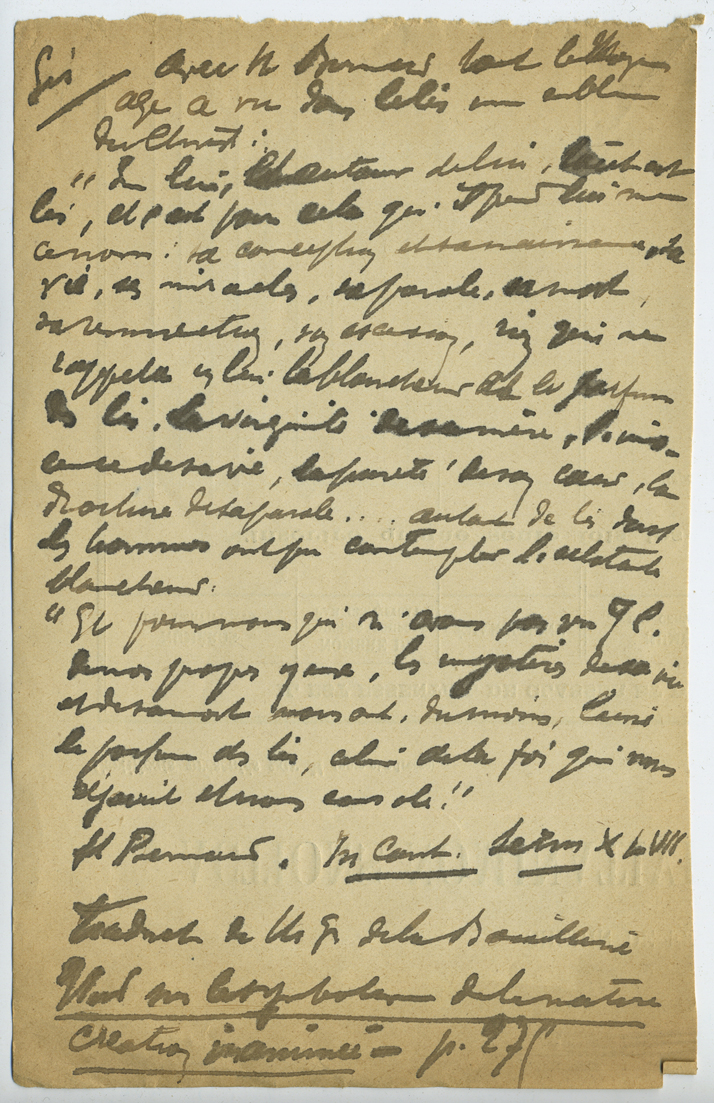 Lis avec St Bernard tout le Moyen
age a vu dans le lis un emblème
du Christ :
" En lui, et autour de lui, tout est
lis, et c'est pour cela qu'il prend lui même
ce nom : sa conception et sa naissance, sa
vie, ses miracles, sa parole, sa mort,
sa résurrection, son ascension, rien qui ne
rappelle en lui la blancheur et le parfum
des lis. La virginité de sa mère, l'inno-
cence de sa vie, la pureté de son cœur, la
droiture de sa parole.... autant de lis dont
les hommes ont pu contempler l'éclatante
blancheur.
" Et pour nous qui n'avons pas vu J C.
de nos propres yeux, les mystères de sa vie
et de sa mort nous ont, du moins, laissé
le parfum des lis, celui de la foi qui nous
réjouit et nous console!"
St Bernard. In Cant. Serm XLVIII.
Traduct de Mgr de la Bouillerie
sur le symbolisme de la nature
Création inanimée - p. 275